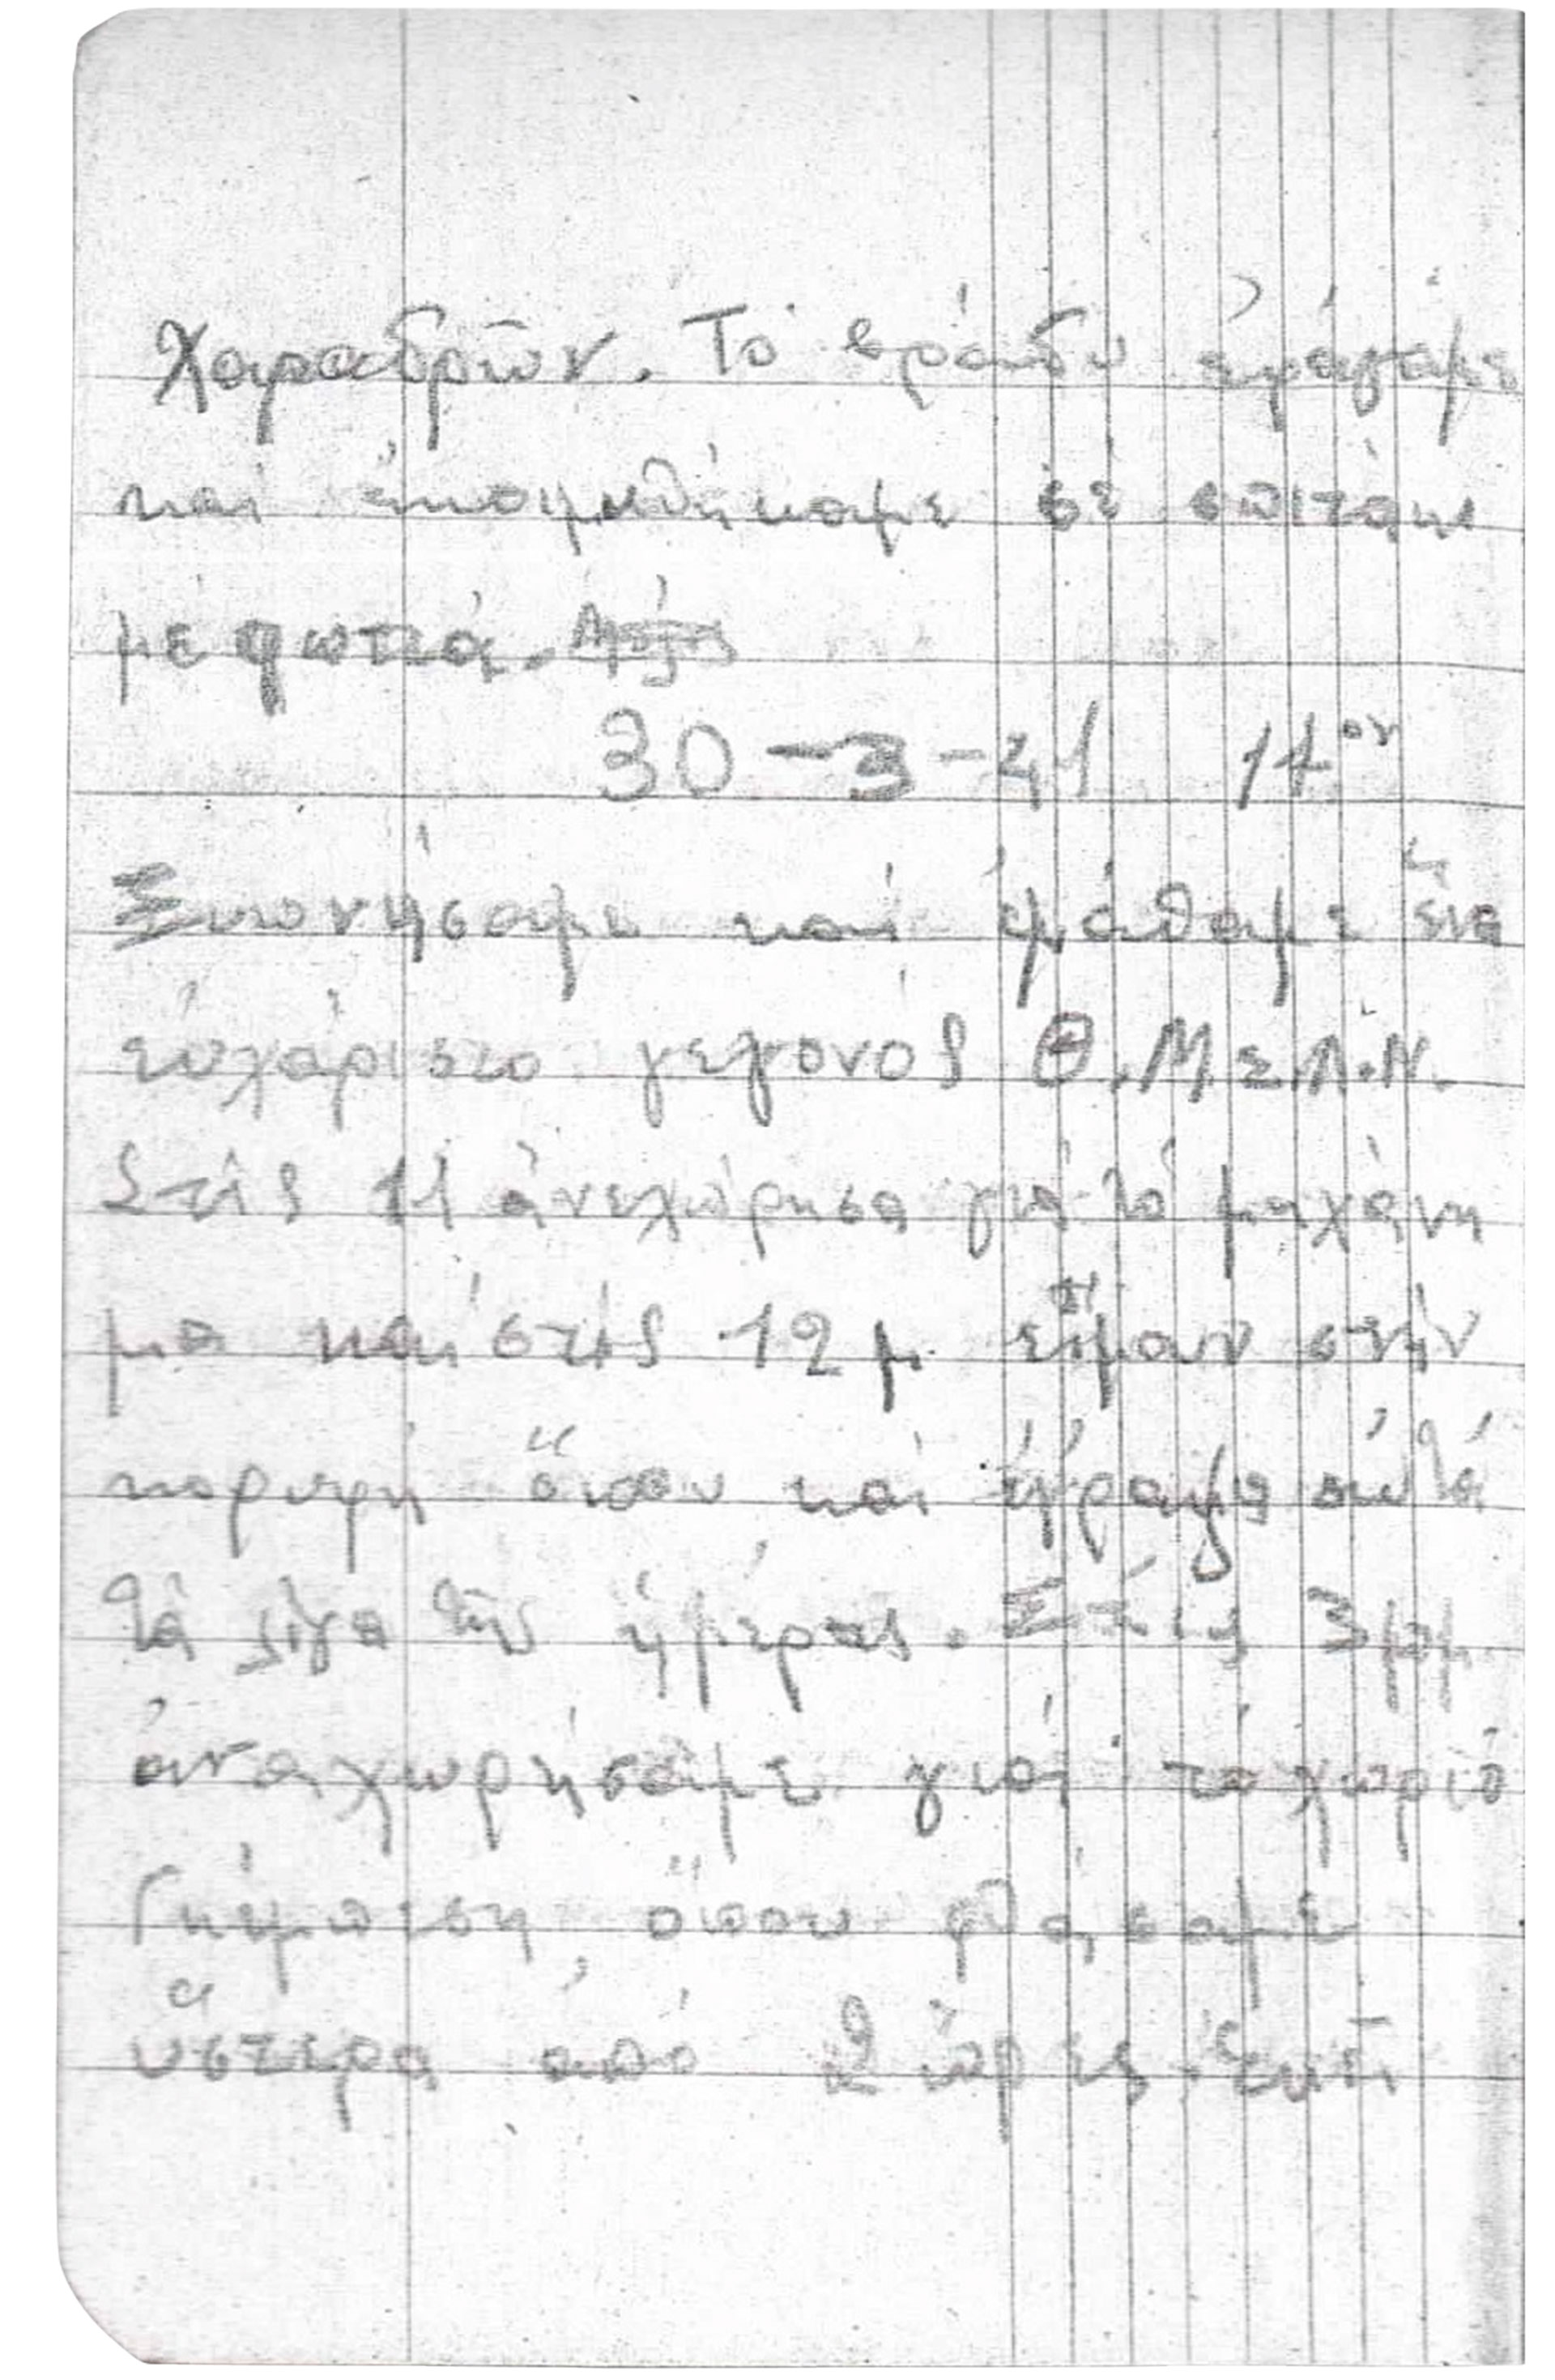 Χαραδρῶν. Τό βράδυ ἐφάγαμε
καί ἐκοιμηθήκαμε σέ σπιτάκι
μέ φωτιά.
30-3-41 14ον
Ξυπνήσαμε καί ἐμάθαμε ἕνα
εὐχάριστο γεγονός Θ.Μ.Σ.Λ.Ν.
Στίς 11 ἀνεχώρησα γιά τό μηχάνη
μα καί στίς 12 μ. εἴμαν στήν
κορυφή ὅπου καί ἔγραψα αὐτά
τά λίγα τῆς ἡμέρας. Στίς 3 μμ
ἀναχωρήσαμε γιά τό χωριό
ὅπου φθάσαμε
ὕστερα ἀπό 2 ὥρες. Ἐκεῖ